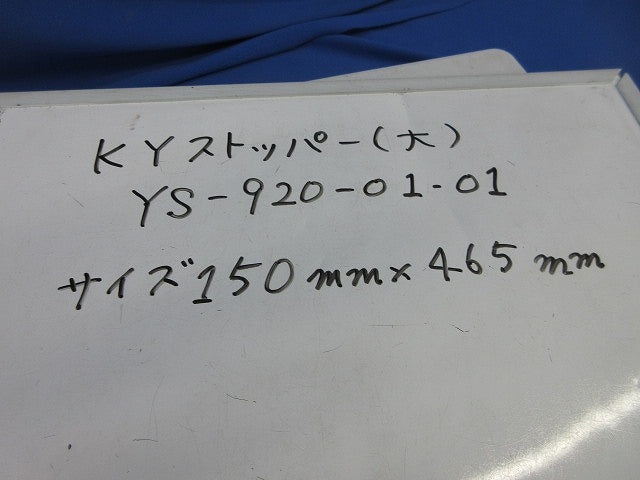 KYストッパー(大)
YS-920-01-01
サイズ150mm×465mm